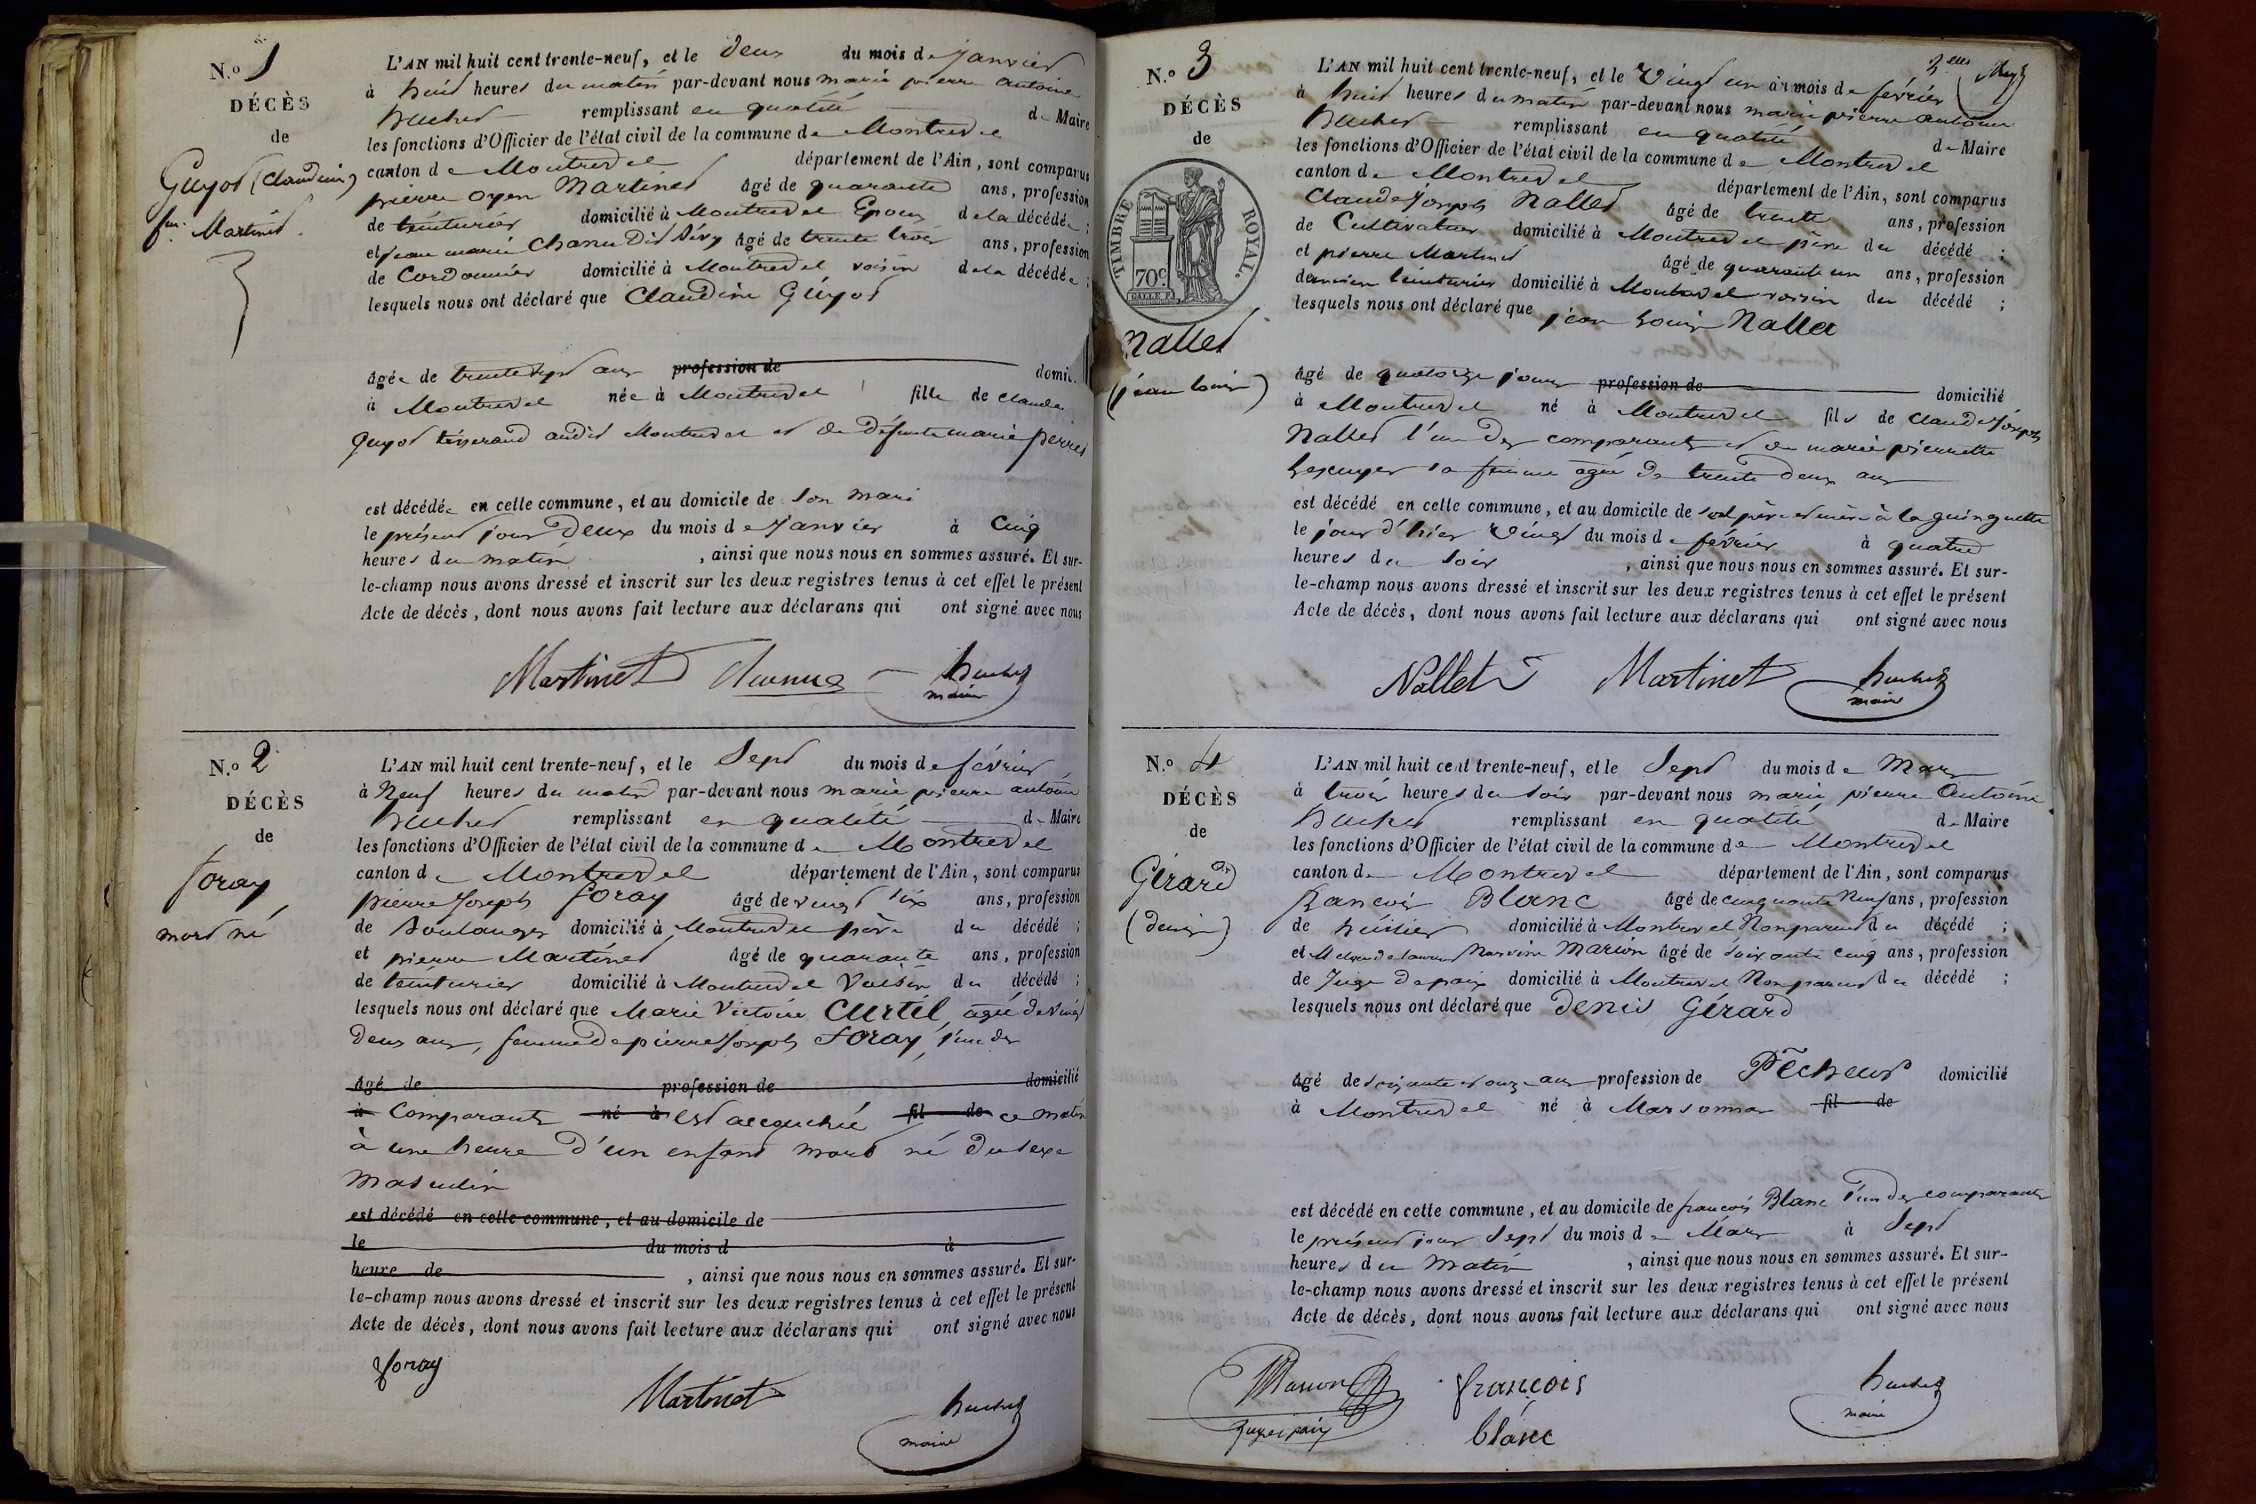 N.o 1
DÉCÈS
de
Guyot (Claudine)
fme Martinet
L'AN mil huit cent trente-neuf, et le deux du mois de janvier
à huit heures du matin par-devant nous marie pierre antoine
huchet remplissant en qualité de Maire
les fonctions d'Officier de l'état civil de la commune de Montrevel
canton de Montrevel département de l'Ain, sont comparus
pierre oyen Martinet âgé de quarante ans, profession
de teinturier domicilié à Montrevel Epoux de la décédée ;
et jean marie Chanu dit Dévy âgé de trente trois ans, profession
de Cordonnier domicilié à Montrevel voisin de la décédée ;
lesquels nous ont déclaré que Claudine Guyot
âgée de trente sept ans profession de domi
à Montrevel née à Montrevel fille de claude
guyot tisserand audit Montrevel et de défunte marie perret
est décédée en cette commune, et au domicile de son mari
le présent jour deux du mois de janvier à cinq
heures du matin , ainsi que nous nous en sommes assuré. Et sur-
le-champ nous avons dressé et inscrit sur les deux registres tenus à cet effet le présent
Acte de décès, dont nous avons fait lecture aux déclarans qui ont signé avec nous
Martinet huchet
maire
N.o 2
DÉCÈS
de
foray
mort né
L'AN mil huit cent trente-neuf, et le Sept du mois de février
à Neuf heures du matin par-devant nous marie pierre antoine
huchet remplissant en qualité de Maire
les fonctions d'Officier de l'état civil de la commune de Montrevel
canton de Montrevel département de l'Ain, sont comparus
pierre Joseph foray âgé de vingt six ans, profession
de boulanger domicilié à Montrevel père du décédé ;
et pierre Martinet âgé de quarante ans, profession
de teinturier domicilié à Montrevel Voisin du décédé ;
lesquels nous ont déclaré que Marie Victoire Curtil, agée de vingt
deux ans, femme de pierre Joseph foray, l'un des
âgé de profession de domicilié
à Comparants né à est accouchée fil de ce matin
à une heure d'un enfant mort né du sexe
masculin
est décédé en cette commune, et au domicile de
le du mois d à
heure de , ainsi que nous nous en sommes assuré. Et sur-
le-champ nous avons dressé et inscrit sur les deux registres tenus à cet effet le présent
Acte de décès, dont nous avons fait lecture aux déclarans qui ont signé avec nous
foray
Martinet
huchet
maire
N.o 3
DÉCÈS
de
TIMBRE ROYAL.
70c.
Nallet
(jean louis)
L'AN mil huit cent trente-neuf, et le Vingt un du mois de février
à huit heures du matin par-devant nous marie pierre antoine
huchet remplissant en qualité de Maire
les fonctions d'Officier de l'état civil de la commune de Montrevel
canton de Montrevel département de l'Ain, sont comparus
Claude Joseph Nallet âgé de trente ans, profession
de Cultivateur domicilié à Montrevel père du décédé ;
et pierre Martinet âgé de quarante un ans, profession
d'ancien teinturier domicilié à Montrevel voisin du décédé ;
lesquels nous ont déclaré que jean Louis Nallet
âgé de quatorze jours profession de domicilié
à Montrevel né à Montrevel fils de claude Joseph
Nallet l'un des comparants et de marie pierrette
Lescuyer sa femme agée de trente deux ans
est décédé en cette commune, et au domicile de son père et mère à la guinguette
le jour d'hier Vingt du mois de février à quatre
heures du soir , ainsi que nous nous en sommes assuré. Et sur-
le-champ nous avons dressé et inscrit sur les deux registres tenus à cet effet le présent
Acte de décès, dont nous avons fait lecture aux déclarans qui ont signé avec nous
Nallet Martinet huchet
maire
N.o 4
DÉCÈS
de
Gérard
(denis)
L'AN mil huit cent trente-neuf, et le Sept du mois de Mars
à trois heures du soir par-devant nous marie pierre Antoine
huchet remplissant en qualité de Maire
les fonctions d'Officier de l'état civil de la commune de Montrevel
canton de Montrevel département de l'Ain, sont comparus
francois Blanc âgé de cinquante Neuf ans, profession
de huissier domicilié à Montrevel Non parent du décédé ;
et Marion âgé de soixante cinq ans, profession
de Juge de paix domicilié à Montrevel Non parent du décédé ;
lesquels nous ont déclaré que denis Gérard
âgé de soixante et onze ans profession de Pêcheur domicilié
à Montrevel né à Marsonnas fil de
est décédé en cette commune, et au domicile de francois Blanc l'un des comparants
le présent jour Sept du mois de Mars à Sept
heures du Matin , ainsi que nous nous en sommes assuré. Et sur-
le-champ nous avons dressé et inscrit sur les deux registres tenus à cet effet le présent
Acte de décès, dont nous avons fait lecture aux déclarans qui ont signé avec nous
Marion françois huchet
juge de paix blanc maire